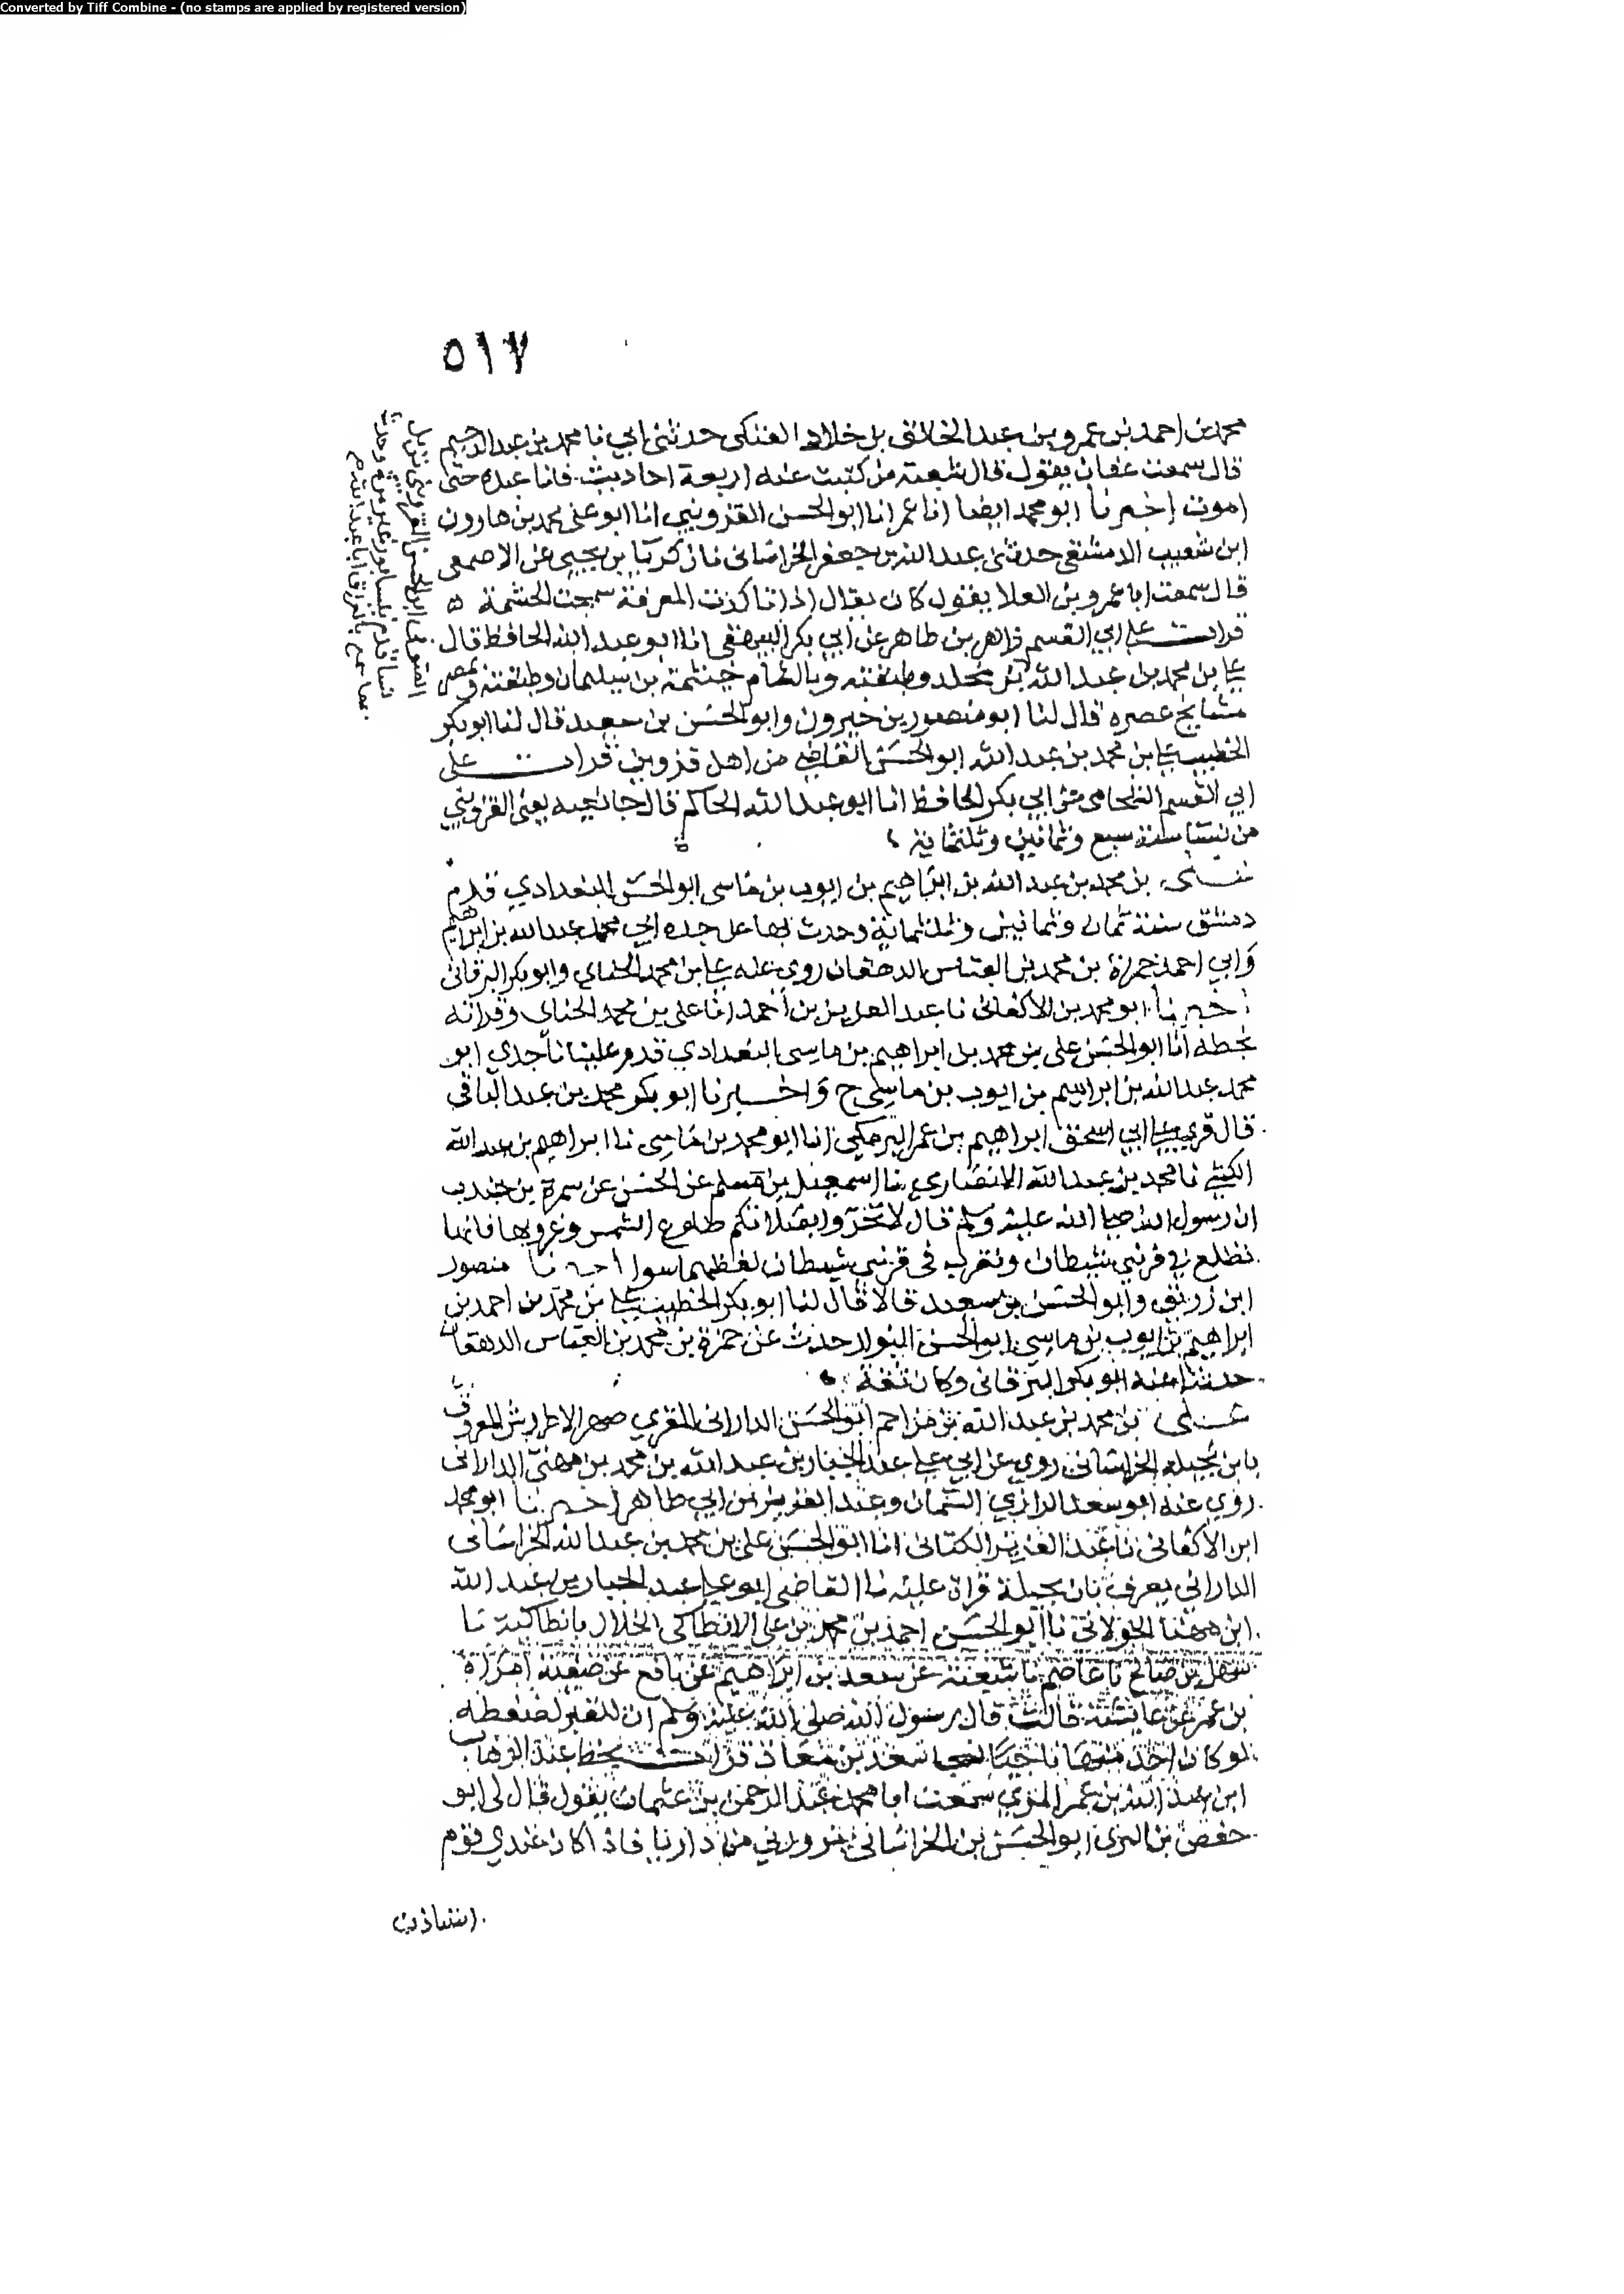 Converted by Tiff Combine - (no stamps are applied by registered version)
٥١٧
محمد بن احمد بن عمرو بن عبد الخالق بن خلاد العتكى حدثنى ابي نا محمد بن عبد الرحيم
قال سمعت عفان يقول قال شعبة من كتبت عنه اربعة احاديث فانا عبده حتى
اموت اخبرنا ابو محمد ايضا انا عمر انا ابو الحسن القزويني انا ابو على محمد بن هارون
ابن شعيب الدمشقى حدثنى عبد الله بن جعفر الخراسانى نا زكريا بن يحيى عن الاصمعى
قال سمعت ابا عمرو بن العلا يقول كان يقال اذا تاكدت المعرفة سمجت الحشمة ه
قرات على ابي القسم زاهر بن طاهر عن ابي بكر البيهقى انا ابو عبد الله الحافظ قال
على بن محمد بن عبد الله بن مخلد وطبقته وبالشام خيثمة بن سليمان وطبقته وبمصر
مشايخ عصره قال لنا ابو منصور بن خيرون وابو الحسن بن سعيد قال لنا ابو بكر
الخطيب على بن محمد بن عبد الله ابو الحسن القاضي من اهل قزوين قرات على
ابي القسم الشحامى عن ابي بكر الحافظ انا ابو عبد الله الحاكم قال جانا نعيه يعنى القزويني
من نسا سنة سبع وثمانين وثلثماية
على بن محمد بن عبد الله بن ابراهيم بن ايوب بن ماسى ابو الحسن البغدادي قدم
دمشق سنة ثمان وثمانين وثلثماية وحدث بها عن جده ابي محمد عبد الله بن ابراهيم
وابي احمد حمزة بن محمد بن العباس الدهقان روى عنه على بن محمد الحنائي وابو بكر البرقانى
اخبرنا ابو محمد بن الاكفانى نا عبد العزيز بن احمد انا على بن محمد الحناى وقراته
بخطه انا ابو الحسن على بن محمد بن ابراهيم بن ماسى البغدادي قدم علينا نا جدي ابو
محمد عبد الله بن ابراهيم بن ايوب بن ماسى ح واخبرنا ابو بكر محمد بن عبد الباقى
قال قري على ابي اسحق ابراهيم بن عمر البرمكي انا ابو محمد بن ماسى نا ابراهيم بن عبد الله
الكجي نا محمد بن عبد الله الانصاري نا اسمعيل بن مسلم عن الحسن عن سمرة بن جندب
ان رسول الله صلى الله عليه وسلم قال لا تتحروا بصلاتكم طلوع الشمس وغروبها فانها
تطلع في قرنى شيطان وتغرب فى قرنى شيطان لفظهما سوا اخبرنا منصور
ابن زريق وابو الحسن بن سعيد قالا قال لنا ابو بكر الخطيب على بن محمد بن احمد بن
ابراهيم بن ايوب بن ماسى ابو الحسن البزاز حدث عن حمزة بن محمد بن العباس الدهقان
حدثنا عنه ابو بكر البرقانى وكان ثقة
على بن محمد بن عبد الله بن مزاحم ابو الحسن الدارانى المقري صهر الاطروش المعروف
بابن بجيلة الخراسانى روى عن ابي على عبد الجبار بن عبد الله بن محمد بن مهنى الدارانى
روى عنه ابو سعد الرازي السمان وعبد العزيز بن ابي طاهر اخبرنا ابو محمد
ابن الاكفانى نا عبد العزيز الكتانى انا ابو الحسن على بن محمد بن عبد الله الخراسانى
الدارانى يعرف بابن بجيلة قراة عليه نا القاضى ابو على عبد الجبار بن عبد الله
ابن مهنا الخولانى نا ابو الحسن احمد بن محمد بن على الانطاكى الخلال بانطاكية نا
سهل بن صالح نا عاصم نا شعبة عن سعد بن ابراهيم عن نافع عن صفية امراة
بن عمر عن عائشة قالت قال رسول الله صلى الله عليه وسلم ان للقبر لضغطة
لو كان احد منها ناجيا لنجا سعد بن معاذ قرات بخط عبد الوهاب
ابن عبد الله بن عمر المزي سمعت ابا محمد عبد الرحمن بن عثمان يقول قال لى ابو
حفص بن البري ابو الحسن بن الخراسانى يزورني من داريا فاذا كان عندي قوم
استاذن